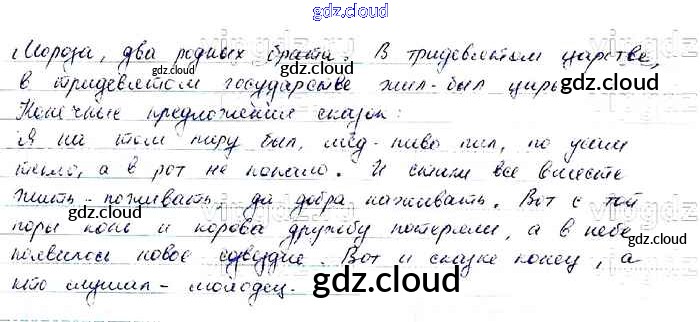 gdz.cloud
Мороза, два родных брата. В тридевятом царстве,
gdz.cloud gdz.cloud
в тридевятом государстве жил-был царь
gdz.cloud
Конечные предложения сказок:
gdz.cloud
Я на том пиру был, мёд-пиво пил, по усам
текло, а в рот не попало. И стали все вместе
жить-поживать да добра наживать. Вот с той
gdz.cloud gdz.cloud
поры конь и корова дружбу потеряли, а в небе
gdz.cloud
появилось новое созвездие. Вот и сказке конец, а
кто слушал - молодец.
gdz.cloud